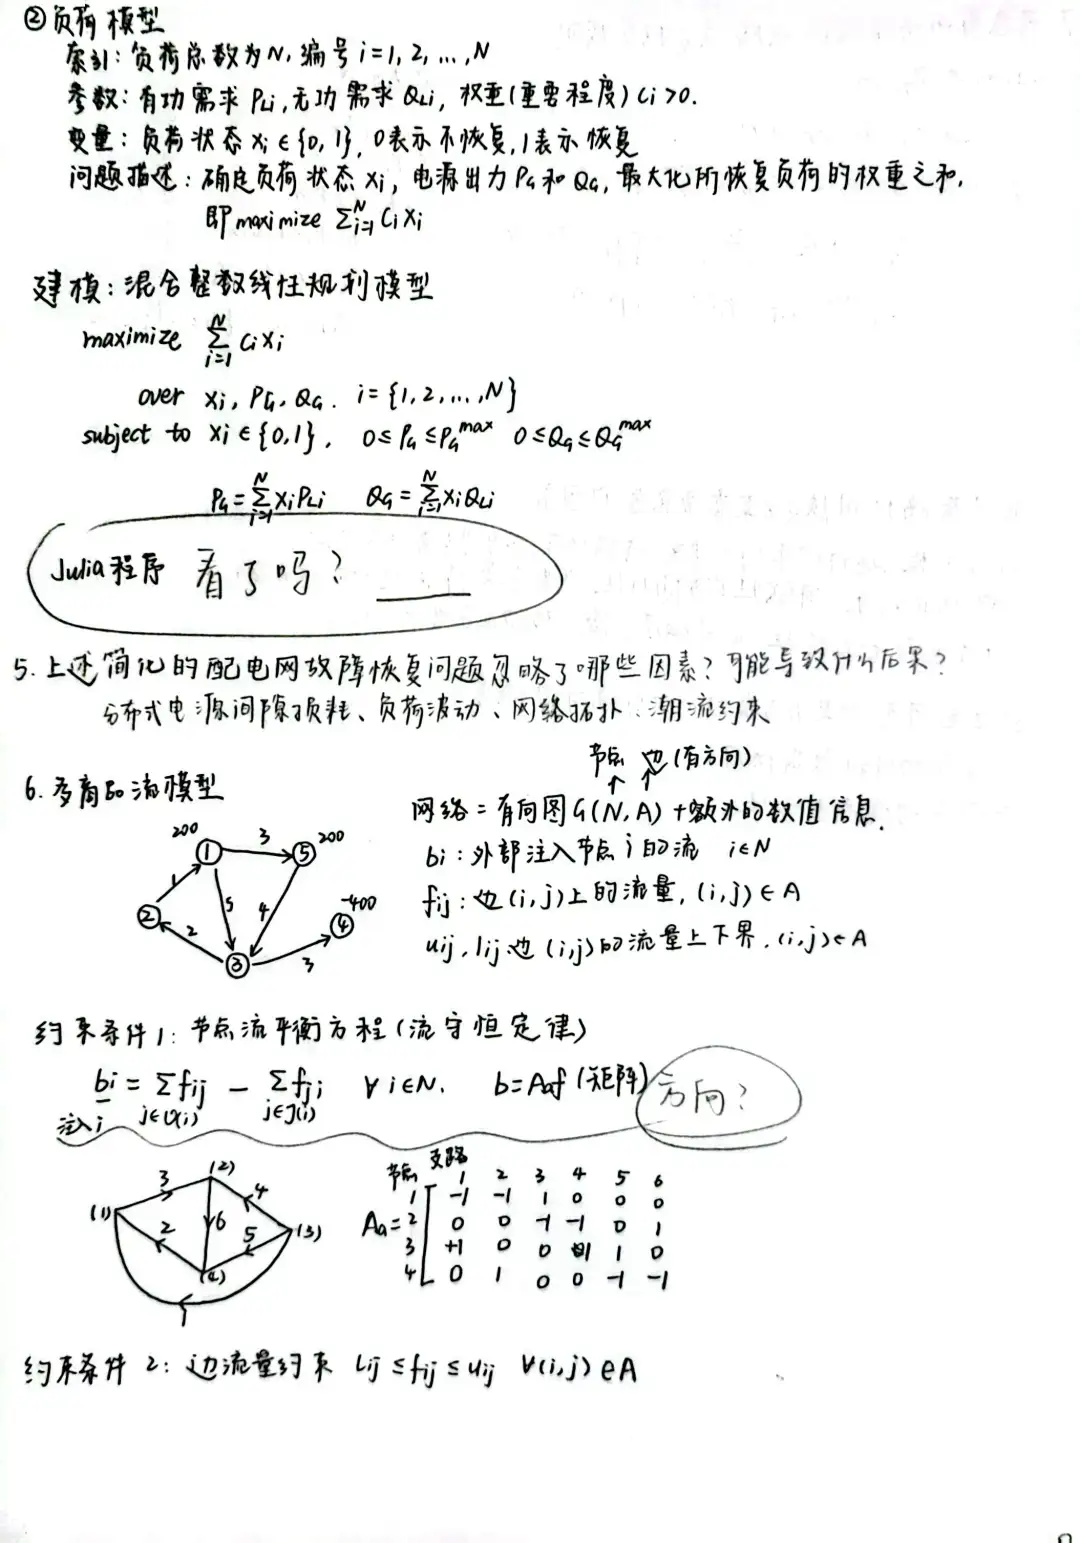 ②负荷模型
索引：负荷总数为N，编号i=1,2,…,N
参数：有功需求PLi,无功需求QLi，权重(重要程度)Ci>0.
变量：负荷状态Xi∈{0,1}，0表示不恢复,1表示恢复
问题描述：确定负荷状态Xi，电源出力PG和QG，最大化所恢复负荷的权重之和，
即maximize ∑_{i=1}^{N} CiXi
建模：混合整数线性规划模型
maximize ∑_{i=1}^{N} CiXi
over Xi, PG, QG. i={1,2,…,N}
subject to Xi∈{0,1}, 0≤PG≤PG^max 0≤QG≤QG^max
PG=∑_{i=1}^{N}XiPLi QG=∑_{i=1}^{N}XiQLi
Julia程序 看了吗？
5.上述简化的配电网故障恢复问题忽略了哪些因素？可能导致什么后果？
分布式电源间隙损耗、负荷波动、网络拓扑、潮流约束
节点 边(有方向)
↑ ↑
6.多商品流模型
网络=有向图G(N,A)+额外的数值信息.
200 ① 3 ⑤ 200
bi：外部注入节点i的流 i∈N
1 5 4 ④ -400
fij：边(i,j)上的流量，(i,j)∈A
② 2 ③ 3
uij，lij边(i,j)的流量上下界，(i,j)∈A
约束条件1：节点流平衡方程(流守恒定律)
bi=∑fij - ∑fji ∀i∈N. b=Aaf(矩阵) 方向？
j∈O(i) j∈I(i)
注入i
3 (2) 4
(1) 2 6 5 (3)
(4)
1
节点 支路 1 2 3 4 5 6
1 -1 -1 1 0 0 0
Aa= 2 0 0 -1 -1 0 1
3 +1 0 0 1 1 0
4 0 1 0 0 -1 -1
约束条件2：边流量约束 Lij≤fij≤uij ∀(i,j)∈A